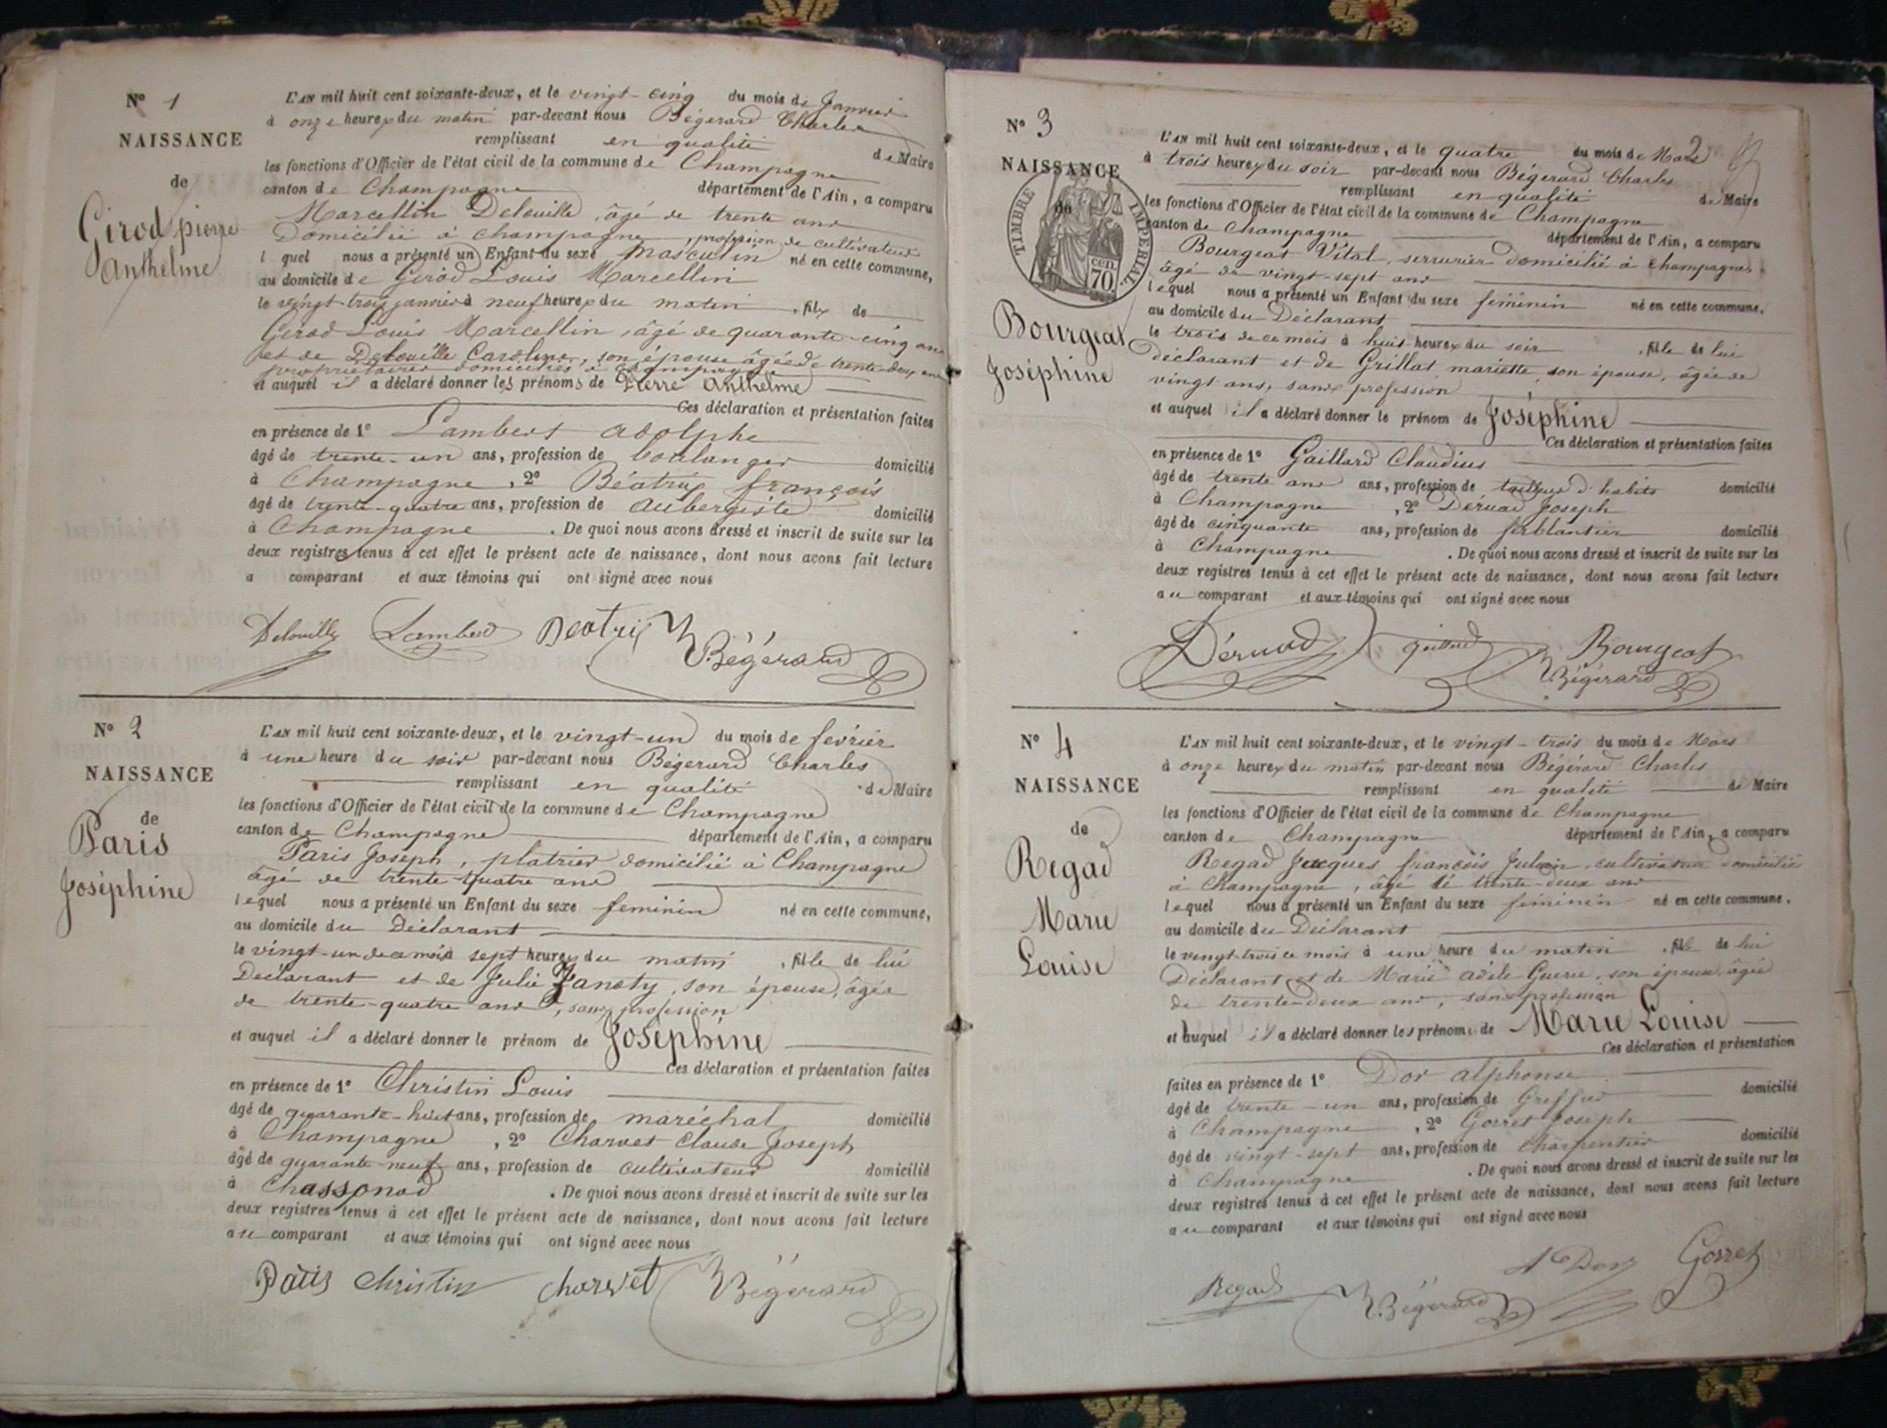 N° 1
NAISSANCE
de
Girod pierre
Anthelme
L'AN mil huit cent soixante-deux, et le vingt-cinq du mois de Janvier
à onze heures du matin par-devant nous Bégerard Charles
remplissant en qualité de Maire
les fonctions d'Officier de l'état civil de la commune de Champagne
canton de Champagne département de l'Ain, a comparu
Marcellin Delouille, âgé de trente ans
Domicilié à Champagne, profession de cultivateur
lequel nous a présenté un Enfant du sexe masculin né en cette commune,
au domicile de Girod Louis Marcellin
le vingt-trois janvier à neuf heures du matin, fils de
Girod Louis Marcellin, âgé de quarante-cinq ans
et de Delouille Caroline, son épouse âgée de trente-deux ans
propriétaires domiciliés à Champagne
et auquel il a déclaré donner les prénoms de Pierre Anthelme
Ces déclaration et présentation faites
en présence de 1° Lambert Adolphe
âgé de trente-un ans, profession de boulanger domicilié
à Champagne, 2° Béatrix françois
âgé de trente-quatre ans, profession de Aubergiste domicilié
à Champagne. De quoi nous avons dressé et inscrit de suite sur les
deux registres tenus à cet effet le présent acte de naissance, dont nous avons fait lecture
a comparant et aux témoins qui ont signé avec nous
Delouille Lambert Beatrix Bégerard
N° 2
NAISSANCE
de
Paris
Joséphine
L'AN mil huit cent soixante-deux, et le vingt-un du mois de février
à une heure du soir par-devant nous Bégerard Charles
remplissant en qualité de Maire
les fonctions d'Officier de l'état civil de la commune de Champagne
canton de Champagne département de l'Ain, a comparu
Paris Joseph, platrier domicilié à Champagne
âgé de trente quatre ans
lequel nous a présenté un Enfant du sexe feminin né en cette commune,
au domicile du Déclarant
le vingt-un de ce mois à sept heures du matin, fille de lui
Déclarant et de Julie Janety, son épouse, âgée
de trente-quatre ans, sans profession
et auquel il a déclaré donner le prénom de Joséphine
Ces déclaration et présentation faites
en présence de 1° Christin Louis
âgé de quarante-huit ans, profession de maréchal domicilié
à Champagne, 2° Charvet Claude Joseph
âgé de quarante-neuf ans, profession de cultivateur domicilié
à Chassonod. De quoi nous avons dressé et inscrit de suite sur les
deux registres tenus à cet effet le présent acte de naissance, dont nous avons fait lecture
au comparant et aux témoins qui ont signé avec nous
Paris Christin Charvet Bégerard
2
N° 3
NAISSANCE
de
TIMBRE IMPERIAL
CEN. 70
Bourgeat
Joséphine
L'AN mil huit cent soixante-deux, et le quatre du mois de Mars
à trois heures du soir par-devant nous Bégerard Charles
remplissant en qualité de Maire
les fonctions d'Officier de l'état civil de la commune de Champagne
canton de Champagne département de l'Ain, a comparu
Bourgeat Vital, serrurier domicilié à Champagne,
âgé de vingt-sept ans
lequel nous a présenté un Enfant du sexe féminin né en cette commune,
au domicile du Déclarant
le trois de ce mois à huit heures du soir, fille de lui
déclarant et de Grillat mariette, son épouse, âgée de
vingt ans, sans profession
et auquel il a déclaré donner le prénom de Joséphine
Ces déclaration et présentation faites
en présence de 1° Gaillard Claudius
âgé de trente ans ans, profession de tailleur d'habits domicilié
à Champagne, 2° Déruad Joseph
âgé de cinquante ans, profession de ferblantier domicilié
à Champagne. De quoi nous avons dressé et inscrit de suite sur les
deux registres tenus à cet effet le présent acte de naissance, dont nous avons fait lecture
au comparant et aux témoins qui ont signé avec nous
Déruad Bourgeat
Bégerard
N° 4
NAISSANCE
de
Regad
Marie
Louise
L'AN mil huit cent soixante-deux, et le vingt-trois du mois de Mars
à onze heures du matin par-devant nous Bégérard Charles
remplissant en qualité de Maire
les fonctions d'Officier de l'état civil de la commune de Champagne
canton de Champagne département de l'Ain, a comparu
Regad Jacques françois cultivateur domicilié
à Champagne, âgé de trente-deux ans
lequel nous a présenté un Enfant du sexe feminin né en cette commune,
au domicile du Déclarant
le vingt trois ce mois à une heure du matin, fille de lui
Déclarant et de Marie adèle Guerre, son épouse, âgée
de trente-deux ans, sans profession
et auquel il a déclaré donner les prénoms de Marie Louise
Ces déclaration et présentation
faites en présence de 1° Dor alphonse
âgé de trente-un ans, profession de Greffier domicilié
à Champagne, 2° Gorret Joseph
âgé de vingt-sept ans, profession de charpentier domicilié
à Champagne. De quoi nous avons dressé et inscrit de suite sur les
deux registres tenus à cet effet le présent acte de naissance, dont nous avons fait lecture
au comparant et aux témoins qui ont signé avec nous
Regad Bégerard Dor Gorret